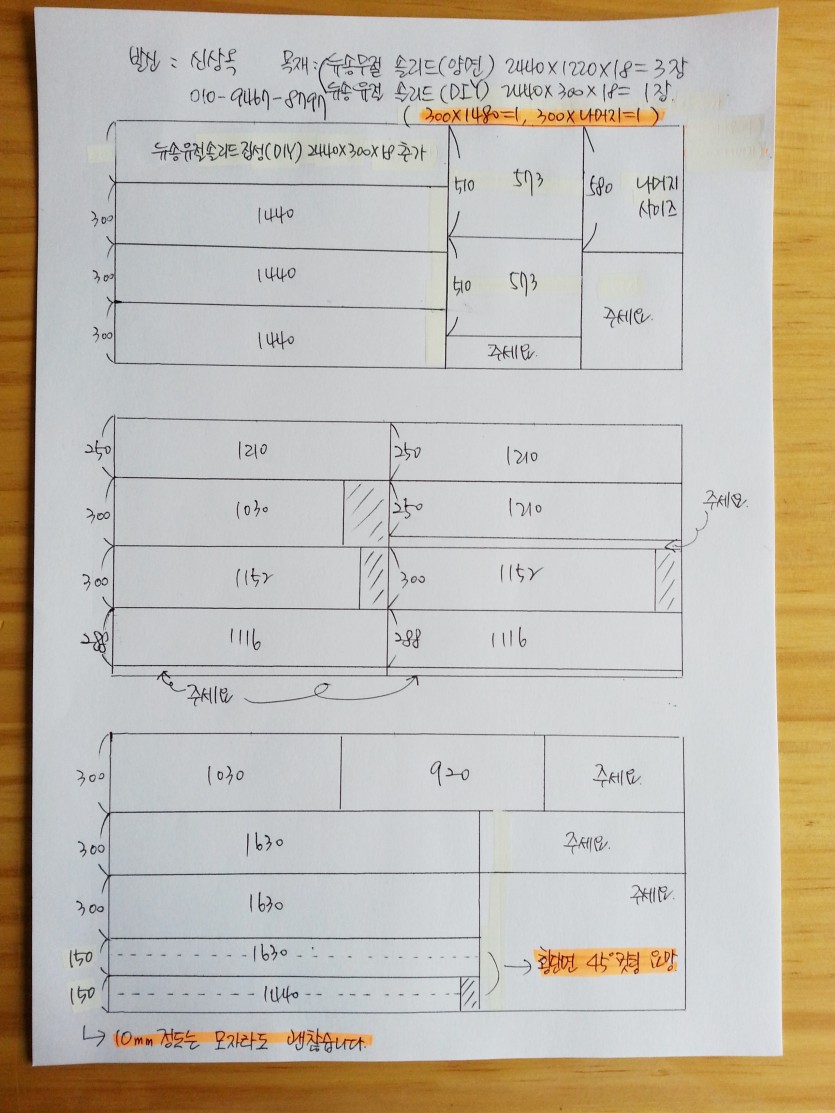 발신 : 신상옥 목재 : 뉴송무절 솔리드(양면) 2440×1220×18=3장
010-9467-8797 뉴송유절 솔리드(DIY) 2440×300×18= 1장.
( 300×1480=1, 300×나머지=1 )
뉴송유절솔리드집성(DIY) 2440×300×18 추가
510 573 580 나머지
사이즈
300 1440
300 1440 510 573
주세요.
300 1440 주세요.
250 1210 250 1210
주세요.
300 1030 250 1210
300 1152 300 1152
288 1116 288 1116
주세요
300 1030 920 주세요.
300 1630 주세요.
300 1630 주세요.
150 1630 횡단면 45°컷팅 요망
150 1440
10mm 정도는 모자라도 괜찮습니다.